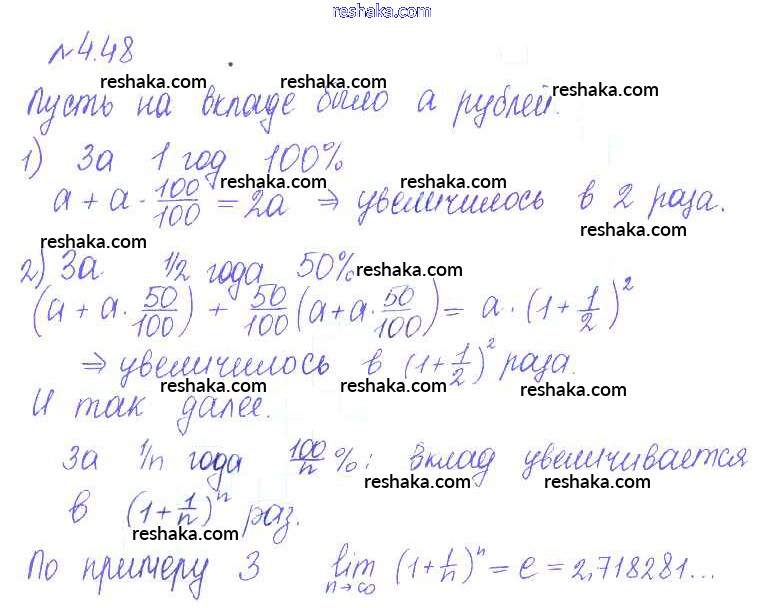 reshaka.com
№4.48
reshaka.com reshaka.com reshaka.com
Пусть на вкладе было а рублей.
1) За 1 год 100%
reshaka.com reshaka.com
a + a · 100/100 = 2a ⇒ увеличилось в 2 раза.
reshaka.com reshaka.com
2) За 1/2 года 50%
reshaka.com
(a + a · 50/100) + 50/100 (a + a · 50/100) = a · (1 + 1/2)²
⇒ увеличилось в (1 + 1/2)² раза.
reshaka.com reshaka.com reshaka.com
И так далее.
за 1/n года 100/n %: вклад увеличивается
reshaka.com reshaka.com
в (1 + 1/n)ⁿ раз.
reshaka.com reshaka.com
По примеру 3 lim n→∞ (1 + 1/n)ⁿ = e = 2,718281...
reshaka.com